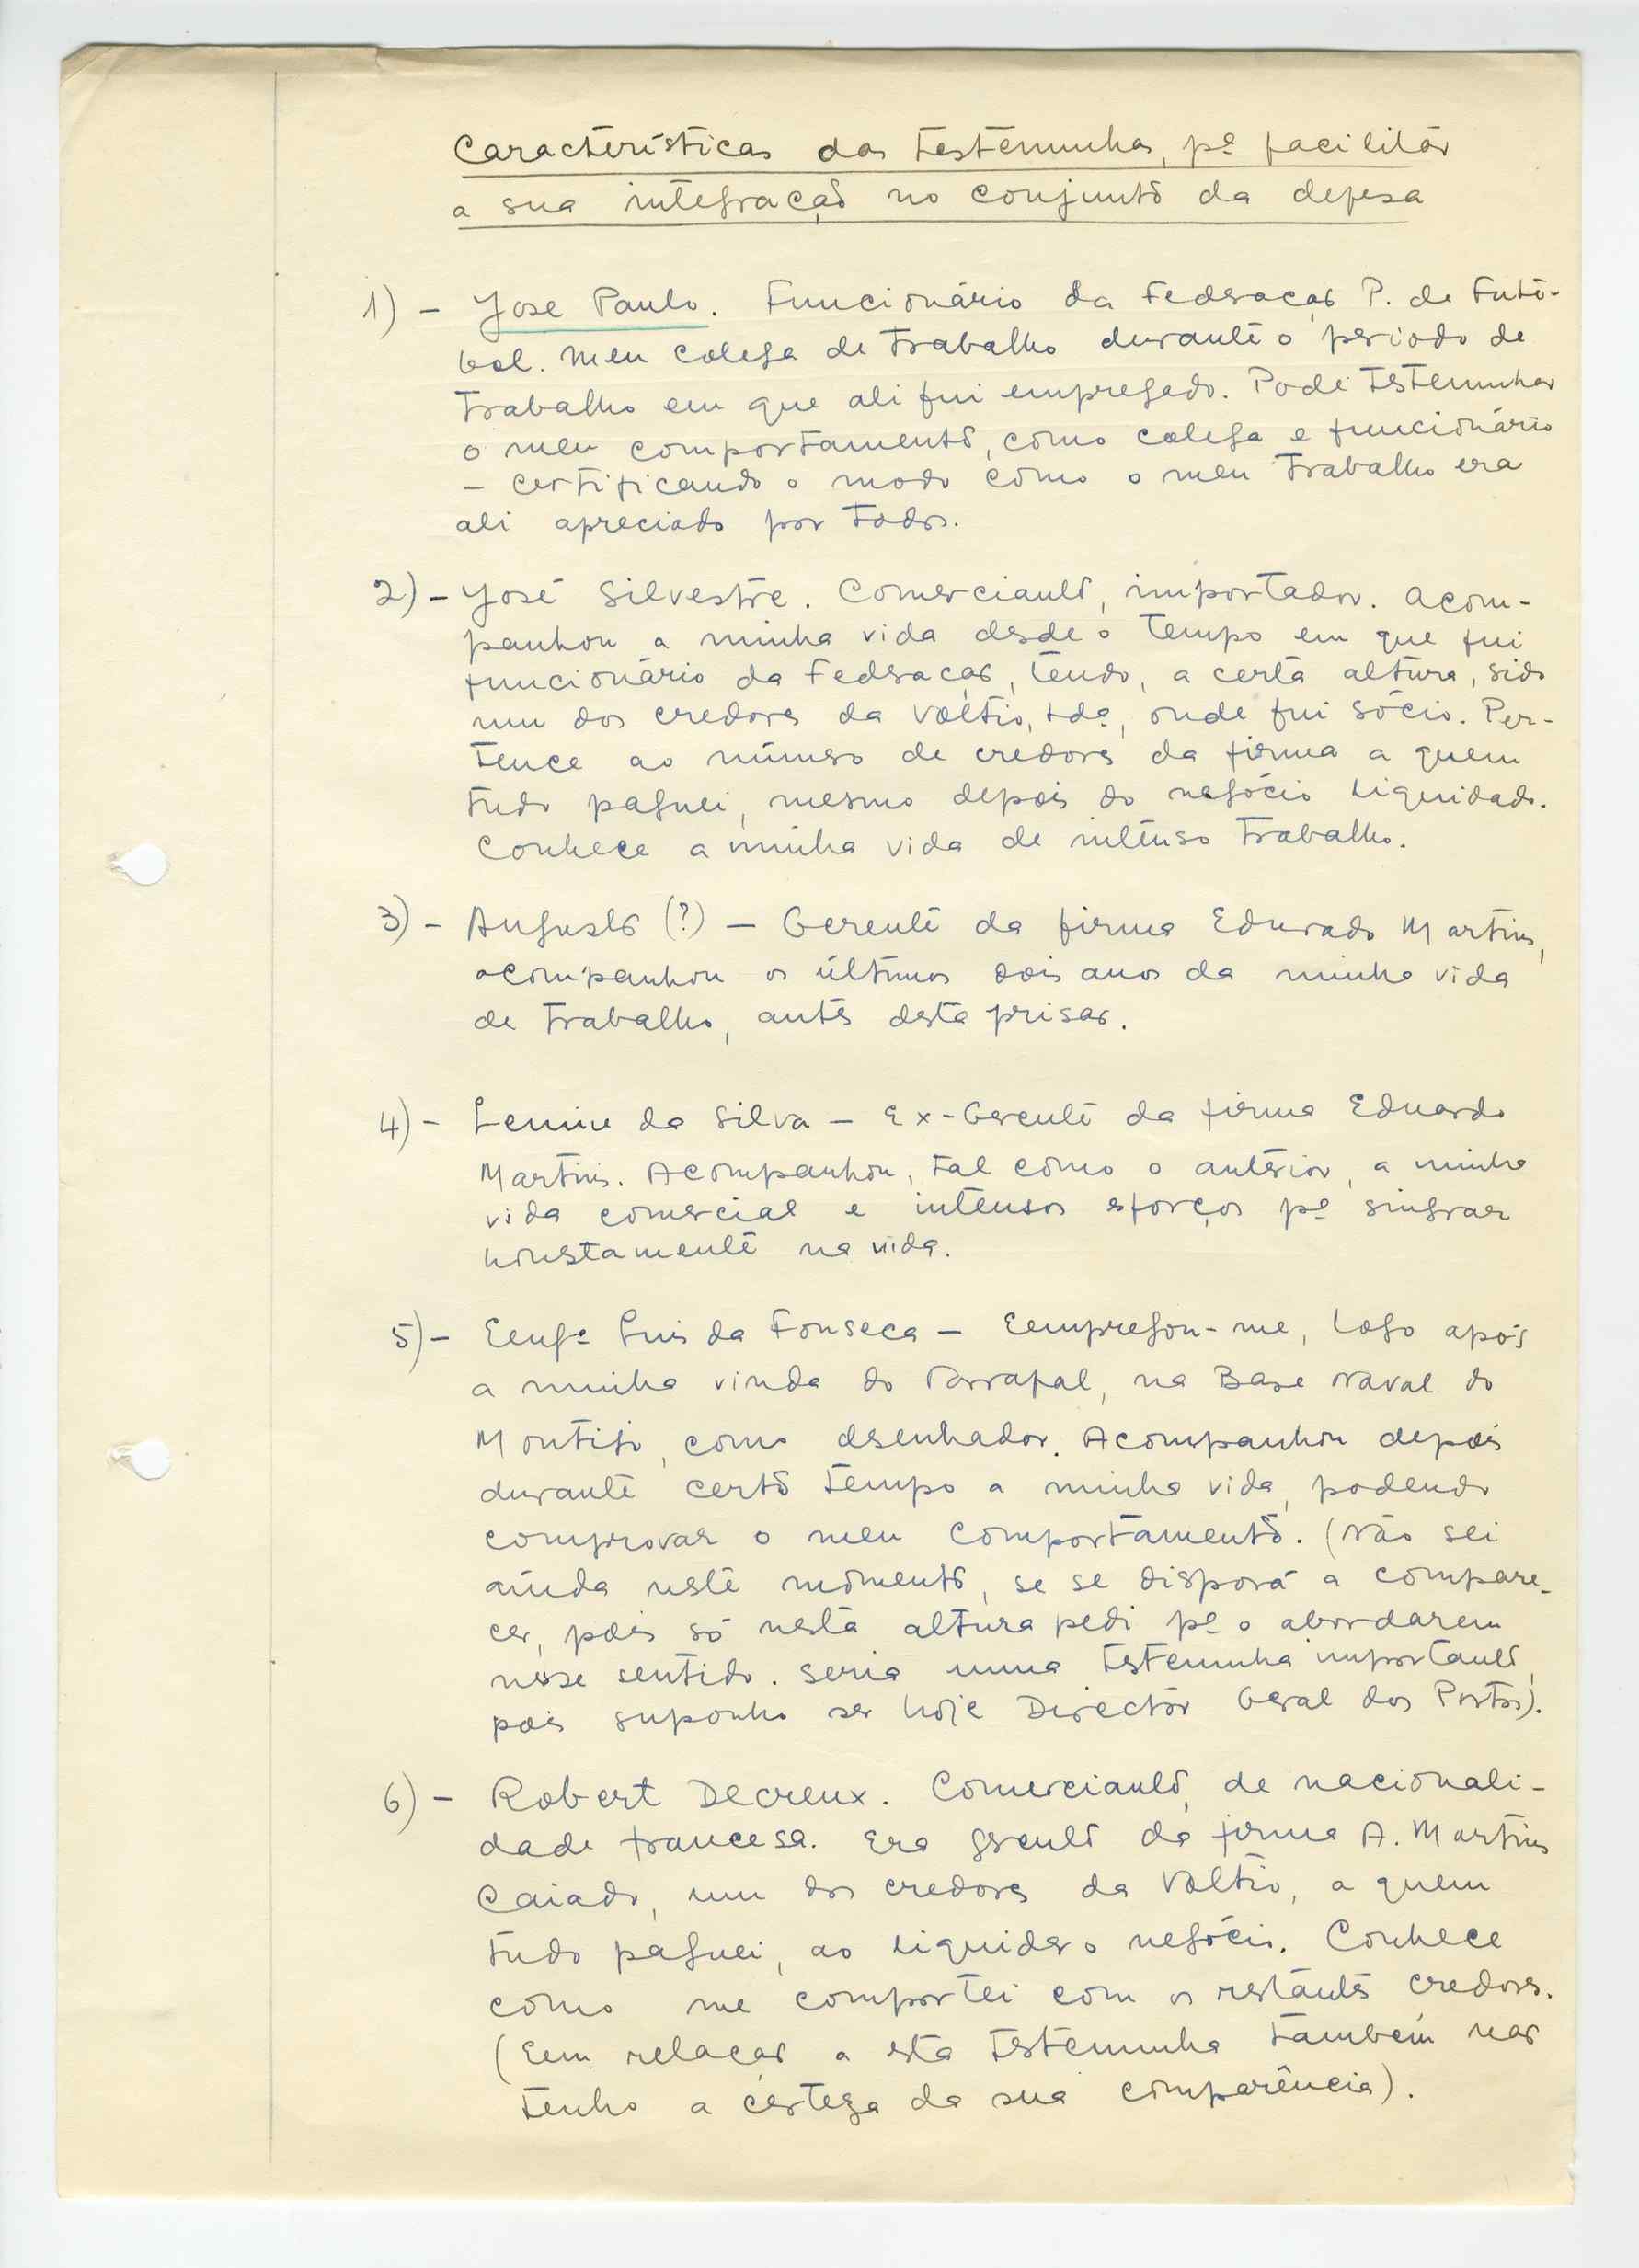 Características das testemunhas, pª facilitar
a sua integração no conjunto da defesa
1) - José Paulo. Funcionário da Federação P. de Fute-
bol. Meu colega de trabalho durante o periodo de
trabalho em que ali fui empregado. Pode testemunhar
o meu comportamento, como colega e funcionário
- certificando o modo como o meu trabalho era
ali apreciado por todos.
2) - José Silvestre. Comerciante, importador. Acom-
panhou a minha vida desde o tempo em que fui
funcionário da Federação, tendo, a certa altura, sido
um dos credores da Voltio, Lda, onde fui sócio. Per-
tence ao número de credores da firma a quem
tudo paguei, mesmo depois do negócio liquidado.
Conhece a minha vida de intenso trabalho.
3) - Augusto (?) - Gerente da firma Eduardo Martins,
acompanhou os últimos dois anos da minha vida
de trabalho, antes desta prisão.
4) - Lenine da Silva - Ex-Gerente da firma Eduardo
Martins. Acompanhou, tal como o anterior, a minha
vida comercial e intensos esforços pª singrar
honestamente na vida.
5) - Engº Luis da Fonseca - Empregou-me, logo após
a minha vinda do Tarrafal, na Base Naval do
Montijo, como desenhador. Acompanhou depois
durante certo tempo a minha vida, podendo
comprovar o meu comportamento. (Não sei
ainda neste momento, se se disporá a compare-
cer, pois só nesta altura pedi pª o abordarem
nesse sentido. Seria uma testemunha importante,
pois suponho ser hoje Director Geral dos Portos).
6) - Robert Decreux. Comerciante, de nacionali-
dade francesa. Era gerente da firma A. Martins
Caiado, um dos credores da Voltio, a quem
tudo paguei, ao liquidar o negócio. Conhece
como me comportei com os restantes credores.
(Em relação a esta testemunha também não
tenho a certeza da sua comparência).